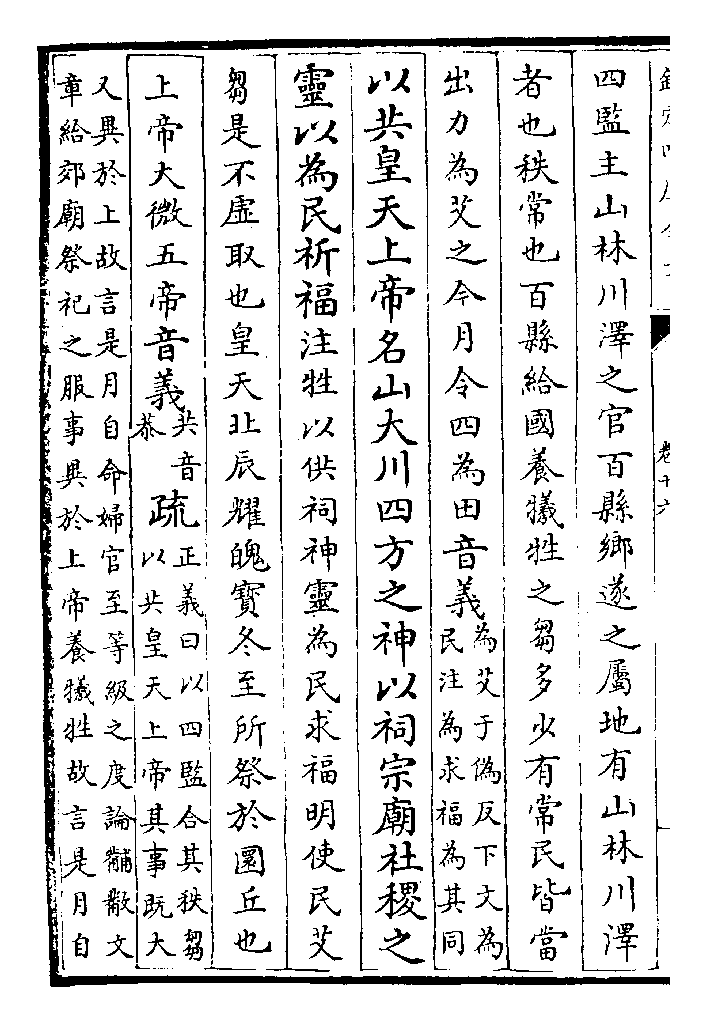 卷十六
四監主山林川澤之官百縣鄉遂之屬地有山林川澤
者也秩常也百縣給國養犧牲之芻多少有常民皆當
出力為艾之今月令四為田音義為艾于偽反下文為
民注為求福為其同
以共皇天上帝名山大川四方之神以祠宗廟社稷之
靈以為民祈福注牲以供祠神靈為民求福明使民艾
芻是不虛取也皇天北辰耀魄寶冬至所祭於圜丘也
上帝大微五帝音義共音
恭疏正義曰以四監合其秩芻
以共皇天上帝其事既大
又異於上故言是月自命婦官至等級之度論黼黻文
章給郊廟祭祀之服事異於上帝養犧牲故言是月自